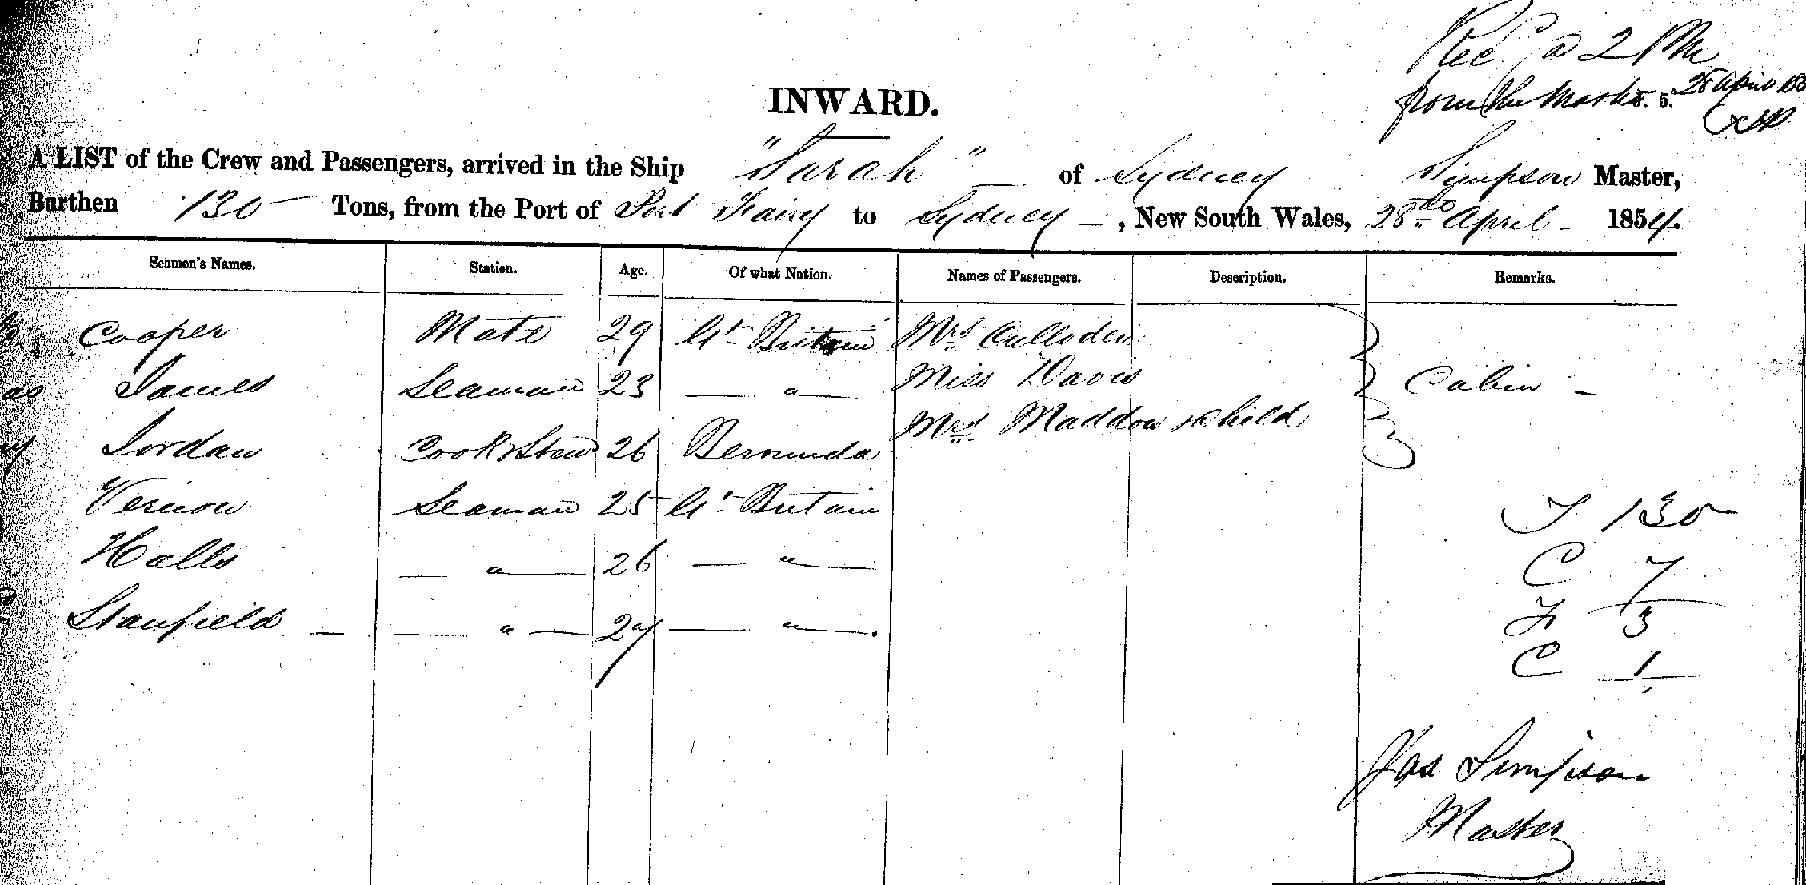 Recd @ 2 PM
from the Master 28 April
INWARD.
A LIST of the Crew and Passengers, arrived in the Ship "Sarah" of Sydney Simpson Master,
Burthen 130 Tons, from the Port of Port Fairy to Sydney, New South Wales, 28th April 1854.
Seamen's Names. Station. Age. Of what Nation. Names of Passengers. Description. Remarks.
Cooper Mate 29 Gt Britain Mrs Culloden
James Seaman 23 — " — Miss Davis Cabin -
Mrs Maddow & child
Jordan Cook & Stew 26 Bermuda
Vernon Seaman 25 Gt Britain
T 130
Halls — " — 26 — " —
C 7
Stanfield — — " — 27 — " —
F 3
C 1
Jas Simpson
Master